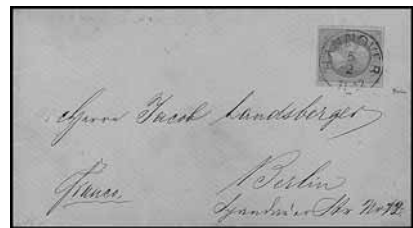 HANNOVER
5
2
Herrn Jacob Landsberger
Franco.
Berlin
Spandauer Str No 72.